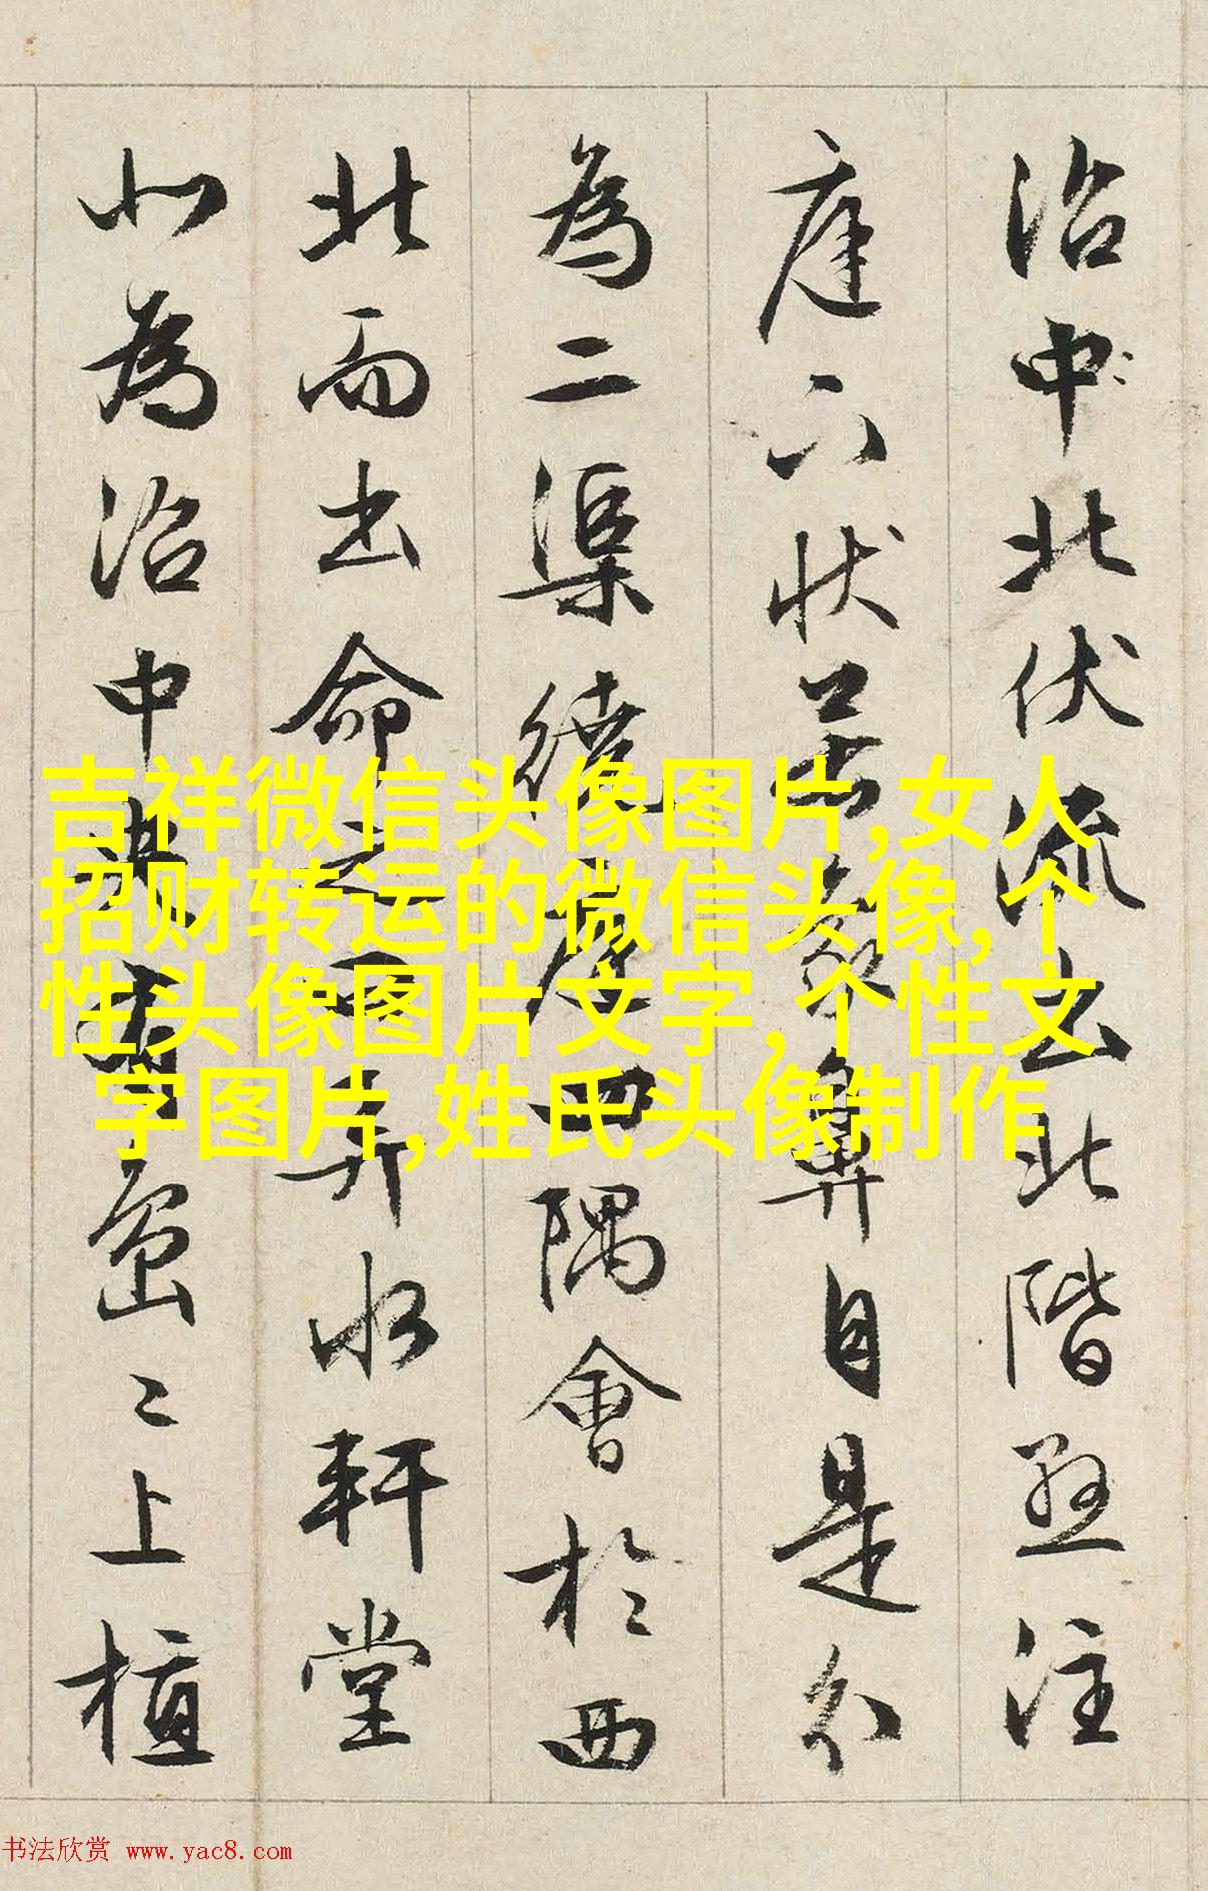 沼中北伏流出北階懸注
庭下狀若象鼻自是分
為二渠繞庭四隅會於西
北而出命之曰弄水軒堂
北為沼中央有島〻上植
吉祥微信头像图片,女人
招财转运的微信头像,个
性头像图片文字,个性文
字图片,姓氏头像制作
书法欣赏 www.yac8.com